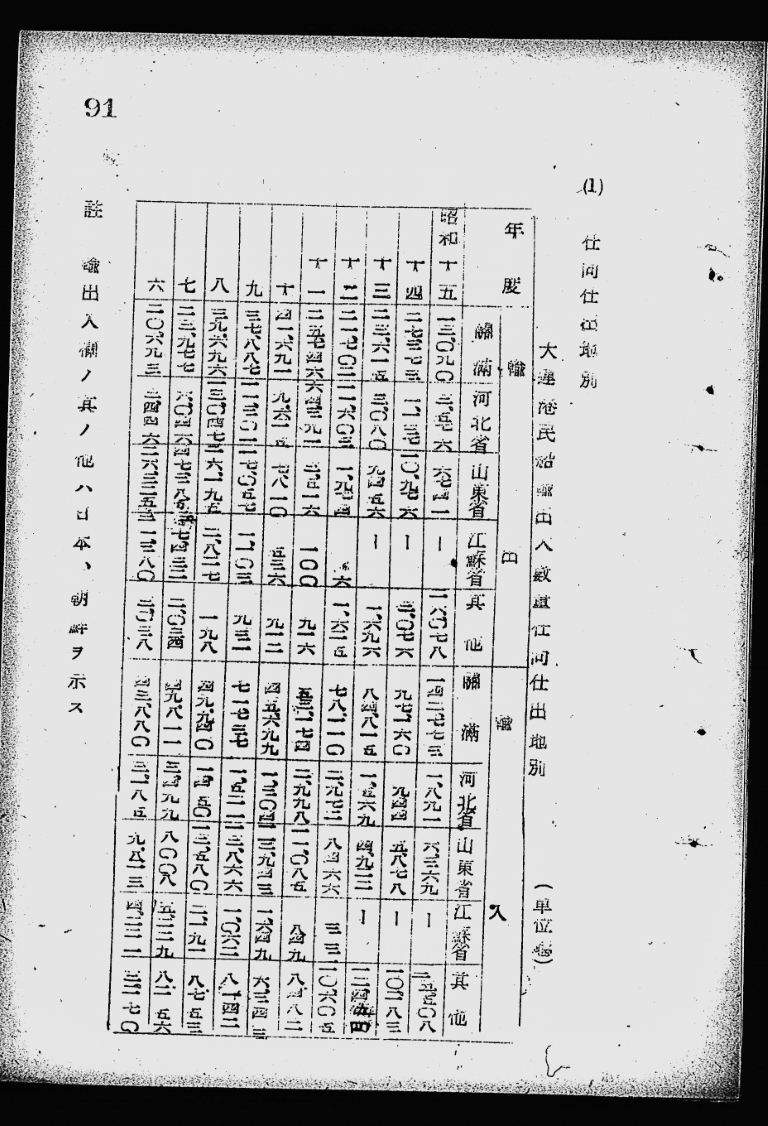 91
(1) 仕向仕出地別
大連港民船輸出入數量仕向仕出地別 (單位瓲)
年度 輸出 輸入
關滿 河北省 山東省 江蘇省 其他 關滿 河北省 山東省 江蘇省 其他
昭和十五 一三、〇九〇 三、五七六 六七四一 ー 一六〇七八 一四二七七三 一、八九一 六、三六九 ー 二五五〇八
十四 二七三七三 一、一三七 一〇、九七六 ー 三、〇七六 九七、一六〇 九四四 五、八七八 ー 一〇二八三
十三 二三、六一五 三、〇八〇 九四五六 ー 一、六九六 八四、八一五 一、五六九 四、九二二 ー
十二 二一、七〇三 一、九七四 六 一、六二五 七八、一一〇 二、九七三 八四六六 三三 一〇六〇五
十一 二五七四六 三、五一六 一〇〇 九一六 二、九九八 一一、〇八五 八四九 八、四八二
十 四一、六九一 九、六一五 七八一〇 五三六 九一二 四五、六九九 一三、九四三 一、六四九 六、三四三
九 三七八八七 一七、〇五七 一、一〇三 九三一 七一七三七 一、五二一 一三、八六六 一、〇六二 八一四二
八 三九、六九六 一三、〇四七 二、八二七 一九八 四九、九四〇 一四五〇 一三、五八〇 二、一九一 八七五三
七 二三、九七七 六、〇四六 二、〇三四 四九、八一一 三四九九 八〇〇八 五、二三九 八二五六
六 二〇、六九三 三、四四六 一、三八〇 三、〇三八 四三、八八〇 三、一八五 九、八一三 四、二三一 三、二七〇
註 輸出入欄ノ其ノ他ハ日本、朝鮮ヲ示ス